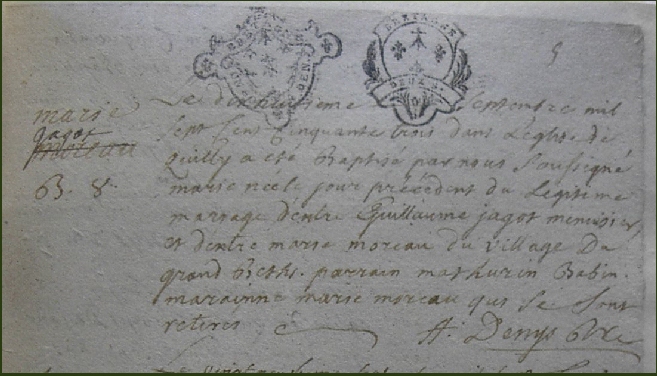 BRETAGNE
DEUX
DEN
5
marie
jagot
moreau
B. 8.
Le dixhuitieme septembre mil
sept cens cinquante trois dans Leglise de
quilly a été Baptisé par nous Soussigné
marie nee le jour précédent du Légitime
mariage d'entre Guillaume jagot menuisier,
et dentre marie moreau du village Du
grand parrain mathurin Babin.
marainne marie moreau qui se sont
retires
A. Denys